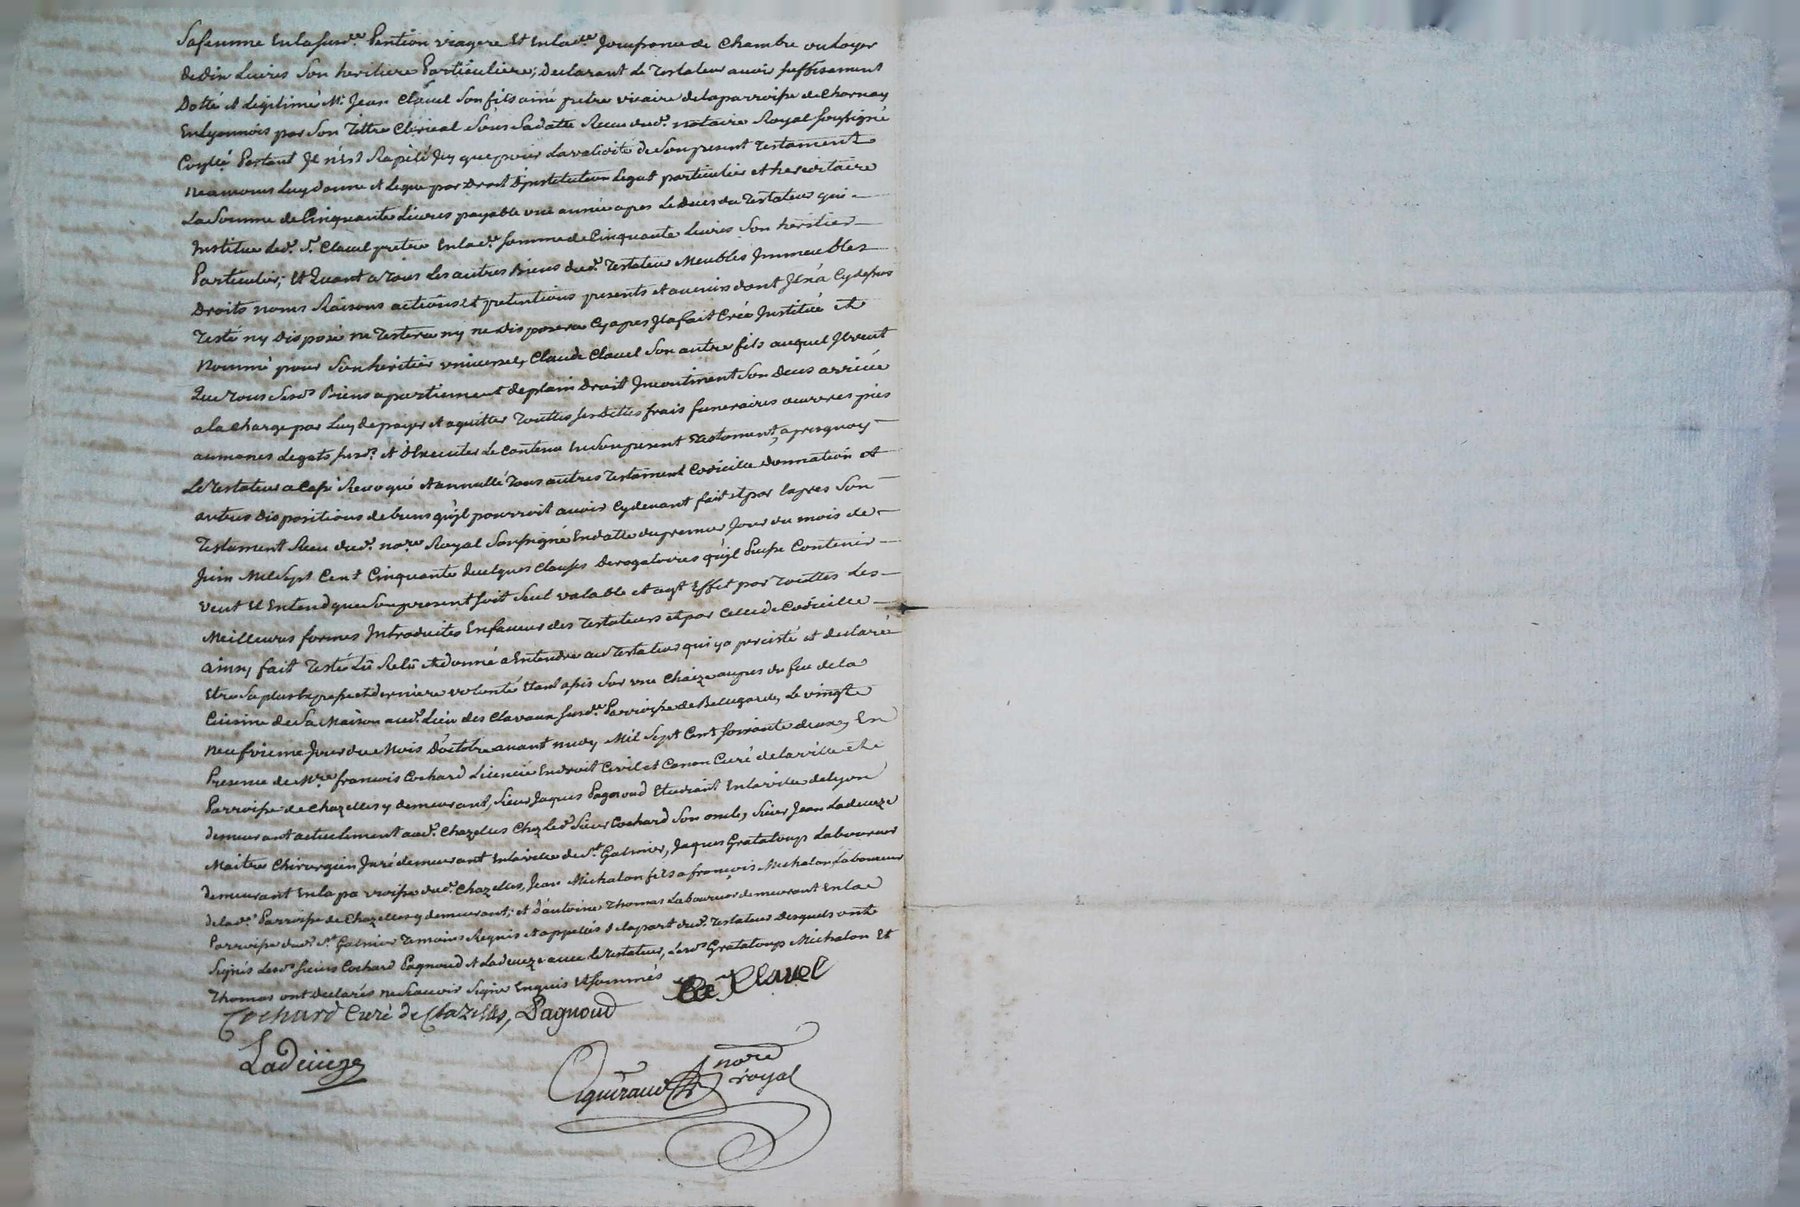 Sa femme En la susd.e Pention viagere Et En lad.e Jouissance de Chambre ou Loyer
de dix Livres Son heritiere Particuliere; declarant Le Testateur avoir suffisament
Dotté et Legitimé M.r Jean Clavel Son fils ainé pretre vicaire de la parroisse de Charnay
En Lyonnois par Son Tittre Clérical Sous Sa datte Receu dud.t notaire Royal Soussigné
Partant Il n'est Rapelé Icy que pour La validité de Son present Testament
Neamoins Luy donne et Legue par Droit d'institution Legat particulier et hereditaire
La Somme de Cinquante Livres payable une année apres Le Deces du Testateur qui
Institue Led.t S.r Clavel pretre En lad.e Somme de Cinquante Livres Son heritier
Particulier; Et Quant a Tous Les autres Biens dud.t Testateur Meubles Immeubles
Droits noms Raisons actions et pretentions presents et avenir dont Il n'a Cy dessus
Testé ny disposé ne Testera ny ne disposera Cy apres Il a fait Créé Institué et
Nommé pour Son heritier universel, Claude Clavel Son autre fils auquel Il veut
Que Tous Sesd.s Biens apartiennent de plain Droit Incontinent Son Deces arrivée
a la Charge par Luy de payer et aquitter Touttes Ses Dettes frais funeraires oeuvres pies
aumones Legats susd.s et d'Executer Le Contenu En Son present Testament, apres quoy
Le Testateur a Cassé Revoqué et annullé Tous autres Testament Codicille Donnation et
autres dispositions de biens qu'il pourroit avoir Cy devant fait et par Expres Son
Testament Receu dud.t no.re Royal Soussigné En datte du premier Jour du mois de
Juin Mil Sept Cent Cinquante quelques Clauses Derogatoires qu'il puisse Contenir
veut Et Entend que Son present Soit Seul valable et ayt Effet par Touttes Les
Meilleures formes Introduites En faveur des Testateurs et par Celle de Codicille
ainsy fait Testé Lû Relû et donné a Entendre au Testateur qui y a percisté et declaré
Etre Sa plus Expresse et derniere volonté Etant assis Sur une Chaize aupres du feu de la
Cuisine de Sa Maison aud.t Lieu des Clavaux susd.e Parroisse de Bellegarde, Le vingt
Neufvieme Jour du Mois D'octobre avant midy Mil Sept Cent Soixante deux, En
Presence de M.re francois Cochard Licencié En droit Civil et Canon Curé de la ville et
Parroisse de Chazelles y demeurant, Sieur Jaques Pagnoud Etudiant En la ville de Lyon
demeurant actuellement aud.t Chazelles Chez Led.t Sieur Cochard Son oncle, Sieur Jean Ladeveze
Maitre Chirurgien Juré demeurant En la ville de S.t Galmier, Jaques Grataloup Laboureur
demeurant En la parroisse dud.t Chazelles, Jean Michalon fils a francois Michalon Laboureur
de lad.e Parroisse de Chazelles y demeurant; et d'antoine Thomas Laboureur demeurant En la
Parroisse dud.t S.t Galmier Temoins Requis et appellés de la part dud.t Testateur Desquels ont
Signés Lesd.s Sieurs Cochard Pagnoud et Ladeveze avec Le Testateur, Lesd.s Grataloup Michalon Et
Thomas ont declarés ne Scavoir Signer Enquis et Sommés
Clavel
Cochard Curé de Chazelles, Pagnoud
Ladeveze
guiraud no.re
royal